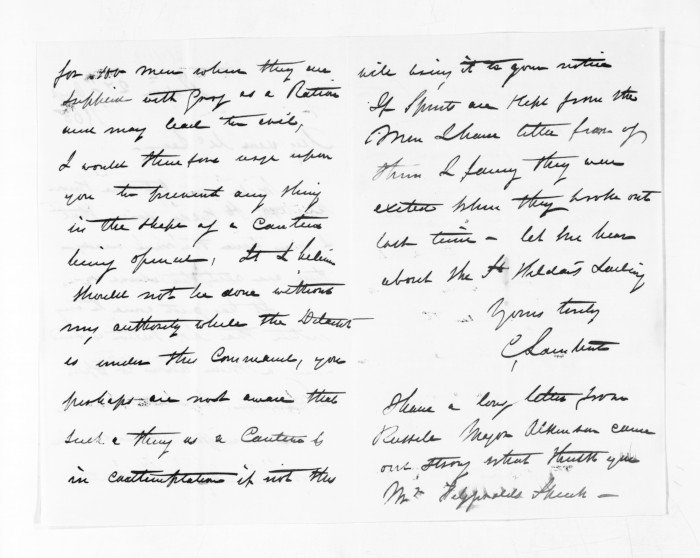 for 400 men when they are
supplied with Grog as a Ration
and may lead to evil,
I would therefore urge upon
you to prevent any thing
in the shape of a Canteen
being opened, It I believe
should not be done without
my authority while the Detacht
is under this Command, you
perhaps are not aware that
such a thing as a Canteen is
in contemplation if not this
will bring it to your notice
If Spirits are kept from the
Men I have little fear of
them I fancy they were
excited when they broke out
last time – let me hear
about the St Hilda's Sailing
Yours truly
I have a long letter from
Russell Major Atkinson came
out strong what think you
Mr Fitzgeralds Speech –